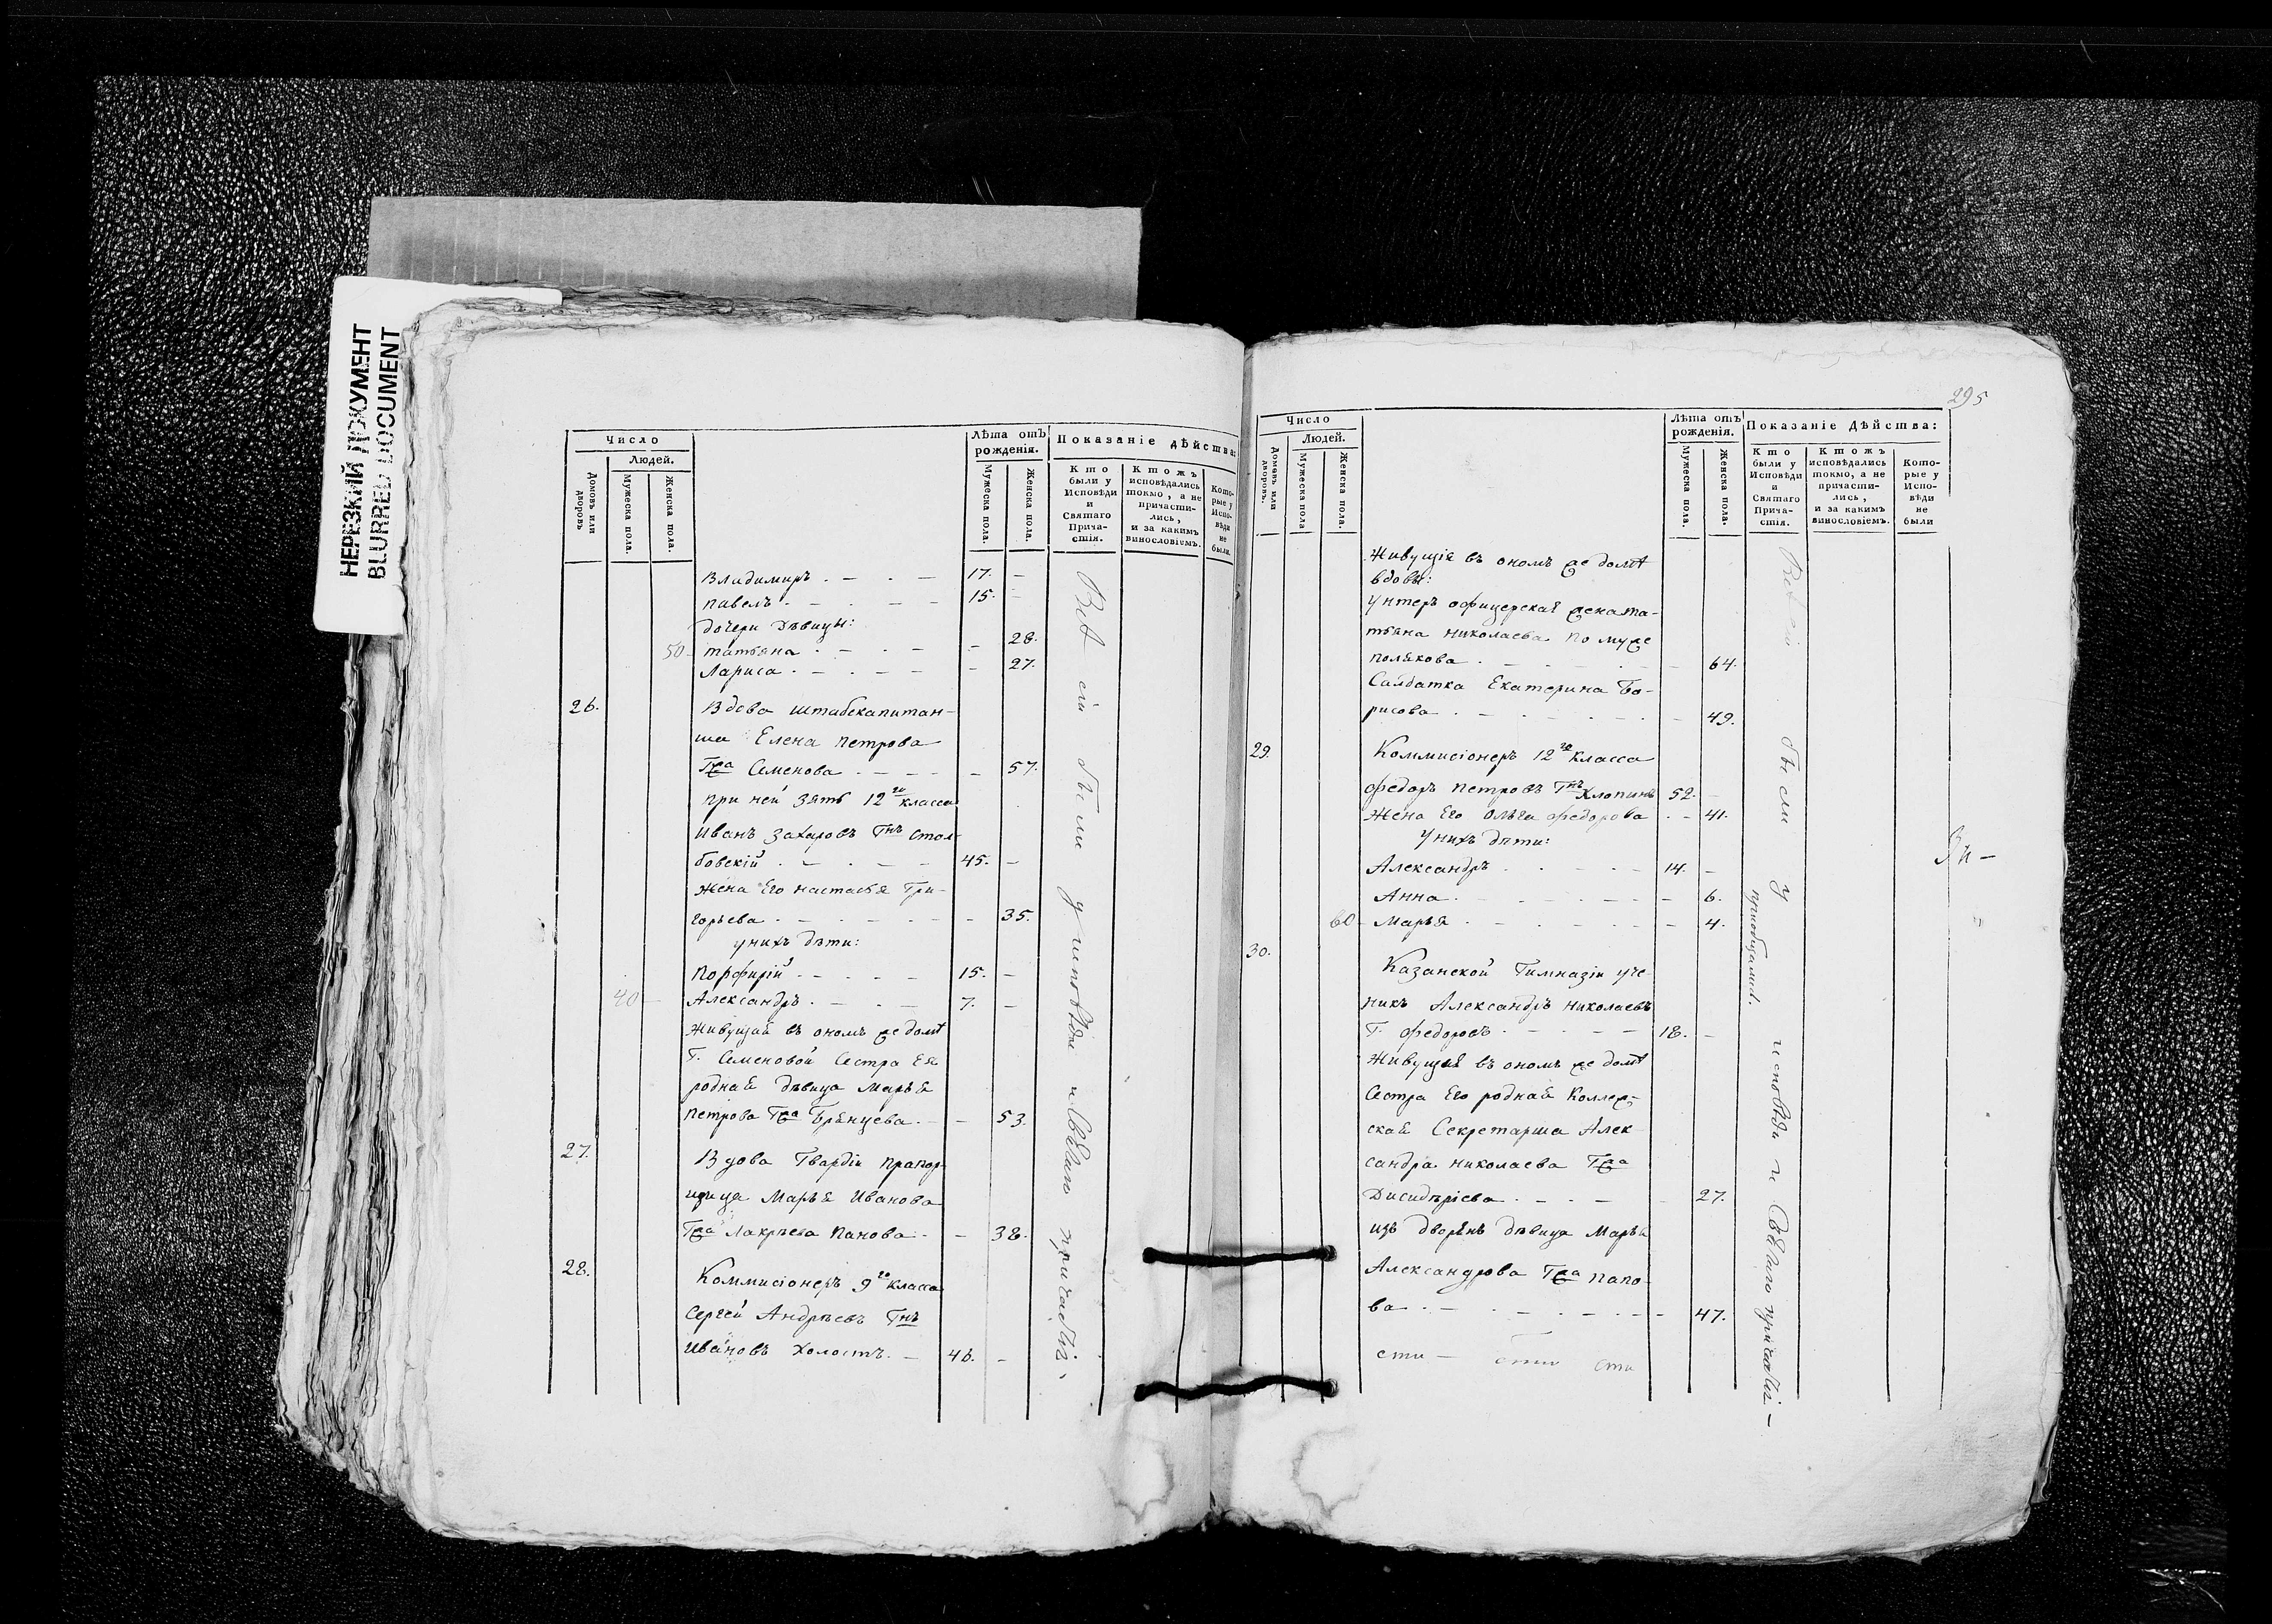 НЕРЕЗКИЙ ДОКУМЕНТ
BLURRED DOCUMENT
Число
Людей.
Домовъ или дворовъ
Мужеска пола.
Женска пола.
Лѣта отъ рожденія.
Мужеска пола.
Женска пола.
Показаніе дѣйства:
Кто были у Исповѣди и Святаго Прича-стія.
Ктожъ исповѣдались токмо, а не причасти-лись, и за какимъ винословіемъ.
Кото-рые у Испо-вѣди не были.
Владимиръ 17. -
Павелъ 15. -
дочери дѣвицы:
50 Татьяна - 28.
Лариса - 27.
26. Вдова штабскапитан-
ша Елена Петрова
Гжа Семенова - 57.
при ней зять 12го класса
Иванъ Захаровъ Гнъ Стол-
бовскій 45. -
жена Его Настасья Гри-
горьева - 35.
у нихъ дѣти:
Порфирій 15. -
40 Александръ 7. -
живущая въ ономъ же домѣ
Г. Семеновой Сестра Ея
родная дѣвица Марья
Петрова Гжа Брянцева - 53.
27. Вдова Гвардіи прапор-
щица Марья Иванова
Гжа Панова - 38.
28. Коммисіонеръ 9го класса
Сергей Андрѣевъ Гнъ
Ивановъ Холостъ 46. -
Всѣ сіи были у исповѣди и Святаго причастія
295
Число
Людей.
Домовъ или дворовъ.
Мужеска пола
Женска пола.
Лѣта отъ рожденія.
Мужеска пола.
Женска пола.
Показаніе Дѣйства:
Кто были у Исповѣди и Святаго Прича-стія.
Ктожъ исповѣдались токмо, а не причасти-лись, и за какимъ винословіемъ.
Кото-рые у Испо-вѣди не были
Живущія въ ономъ же домѣ
вдовы:
Унтеръ офицерская жена Та-
тьяна Николаева по муже
Полякова - 64.
Салдатка Екатерина Бо-
рисова - 49.
29. Коммисіонеръ 12го класса
Федоръ Петровъ Гнъ Хлопинъ 52. -
Жена Его Ольга Федорова - 41.
У нихъ дѣти:
Александръ 14. -
Анна - 6.
60 Марья - 4.
30.
Казанской Гимназіи уче-
никъ Александръ Николаевъ
Г. Федоровъ 18. -
Живущая въ ономъ же домѣ
Сестра Его родная Коллеж-
ская Секретарша Алек-
сандра Николаева Гжа
- 27.
изъ дворянъ дѣвица Марья
Александрова Гжа Папо-
ва - 47.
сти - сти сти
Всѣ сіи были у исповѣди и Святаго причастія -